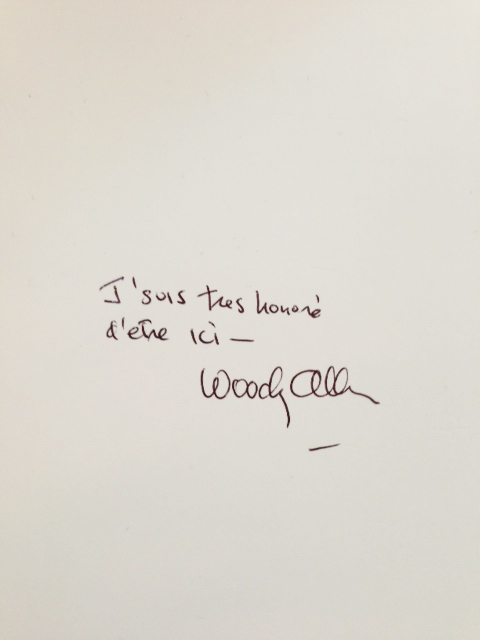 J'suis tres honoré
d'être ici —
Woody Allen
—